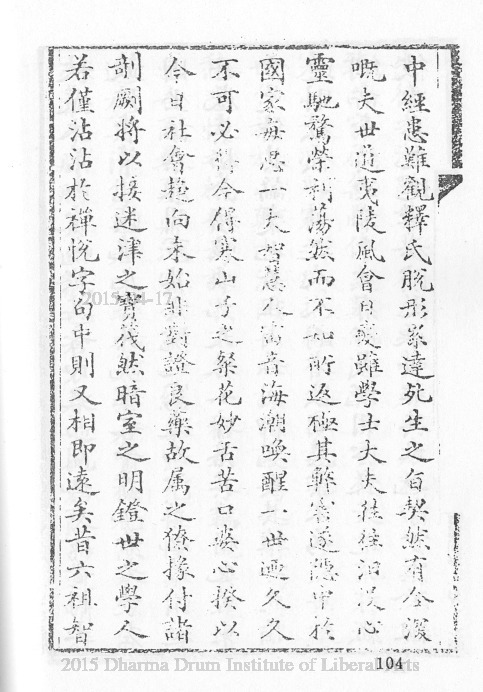 中經患難觀釋氏脫形累達死生之旨契然有合深
嘅夫世道夷陵風會日變雖學士大夫往往汨沒心
靈馳騖榮利蕩然而不知所返極其弊害遂憑中於
國家每思一大智慧人富音海潮喚醒一世迺久久
不可必得今得寒山子之粲花妙舌苦口婆心揆以
今日社會趨向未始非對證良藥故属之僚掾付諸
剞劂將以接迷津之寶筏然暗室之明鐙世之學人
若僅沾沾於禪悅字句中則又相即遠矣昔六祖智
104
2015-04-17
2015 Dharma Drum Institute of Liberal Arts